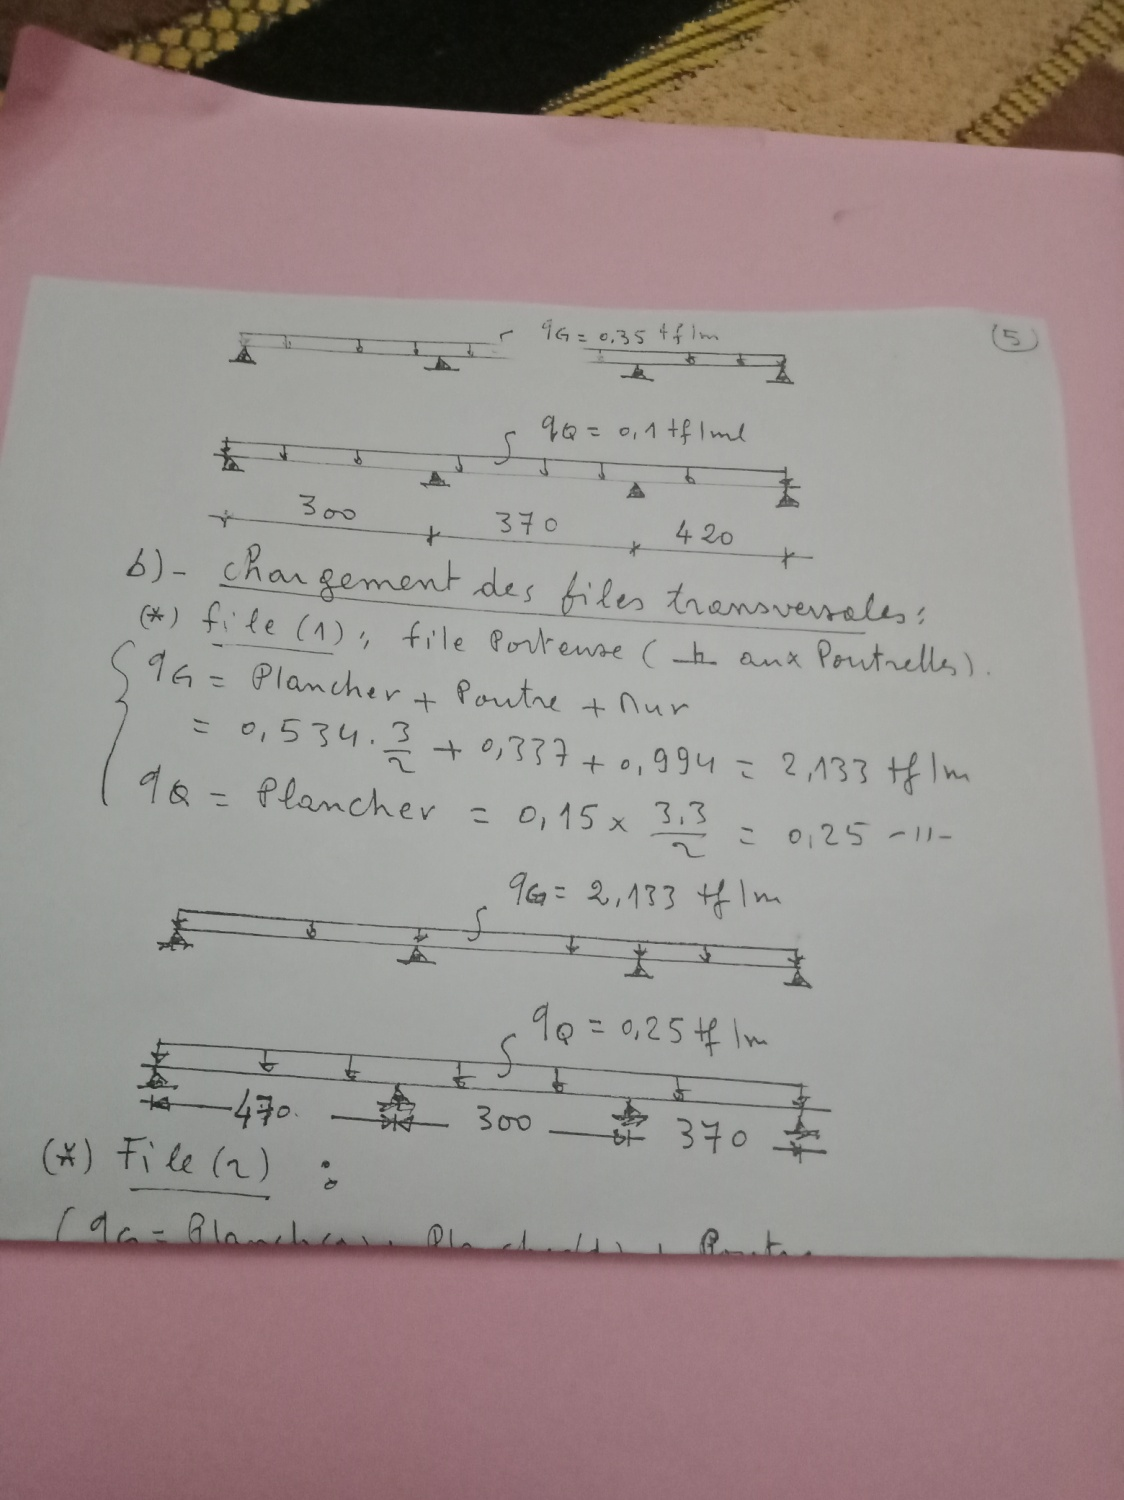 (5)
qG = 0,35 tf/m
qQ = 0,1 tf/ml
300 370 420
b)- chargement des files transversales:
(*) file (1): file Porteuse ( ⊥ aux Poutrelles).
qG = Plancher + Poutre + Mur
= 0,534 · 3/2 + 0,337 + 0,994 = 2,133 tf/m
qQ = Plancher = 0,15 × 3,3/2 = 0,25 -11-
qG = 2,133 tf/m
qQ = 0,25 tf/m
470 300 370
(*) File (2) :
qG =